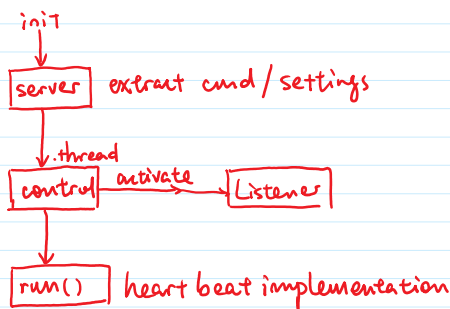 init
server extract cmd / settings
.thread
control activate Listener
run() heart beat implementation